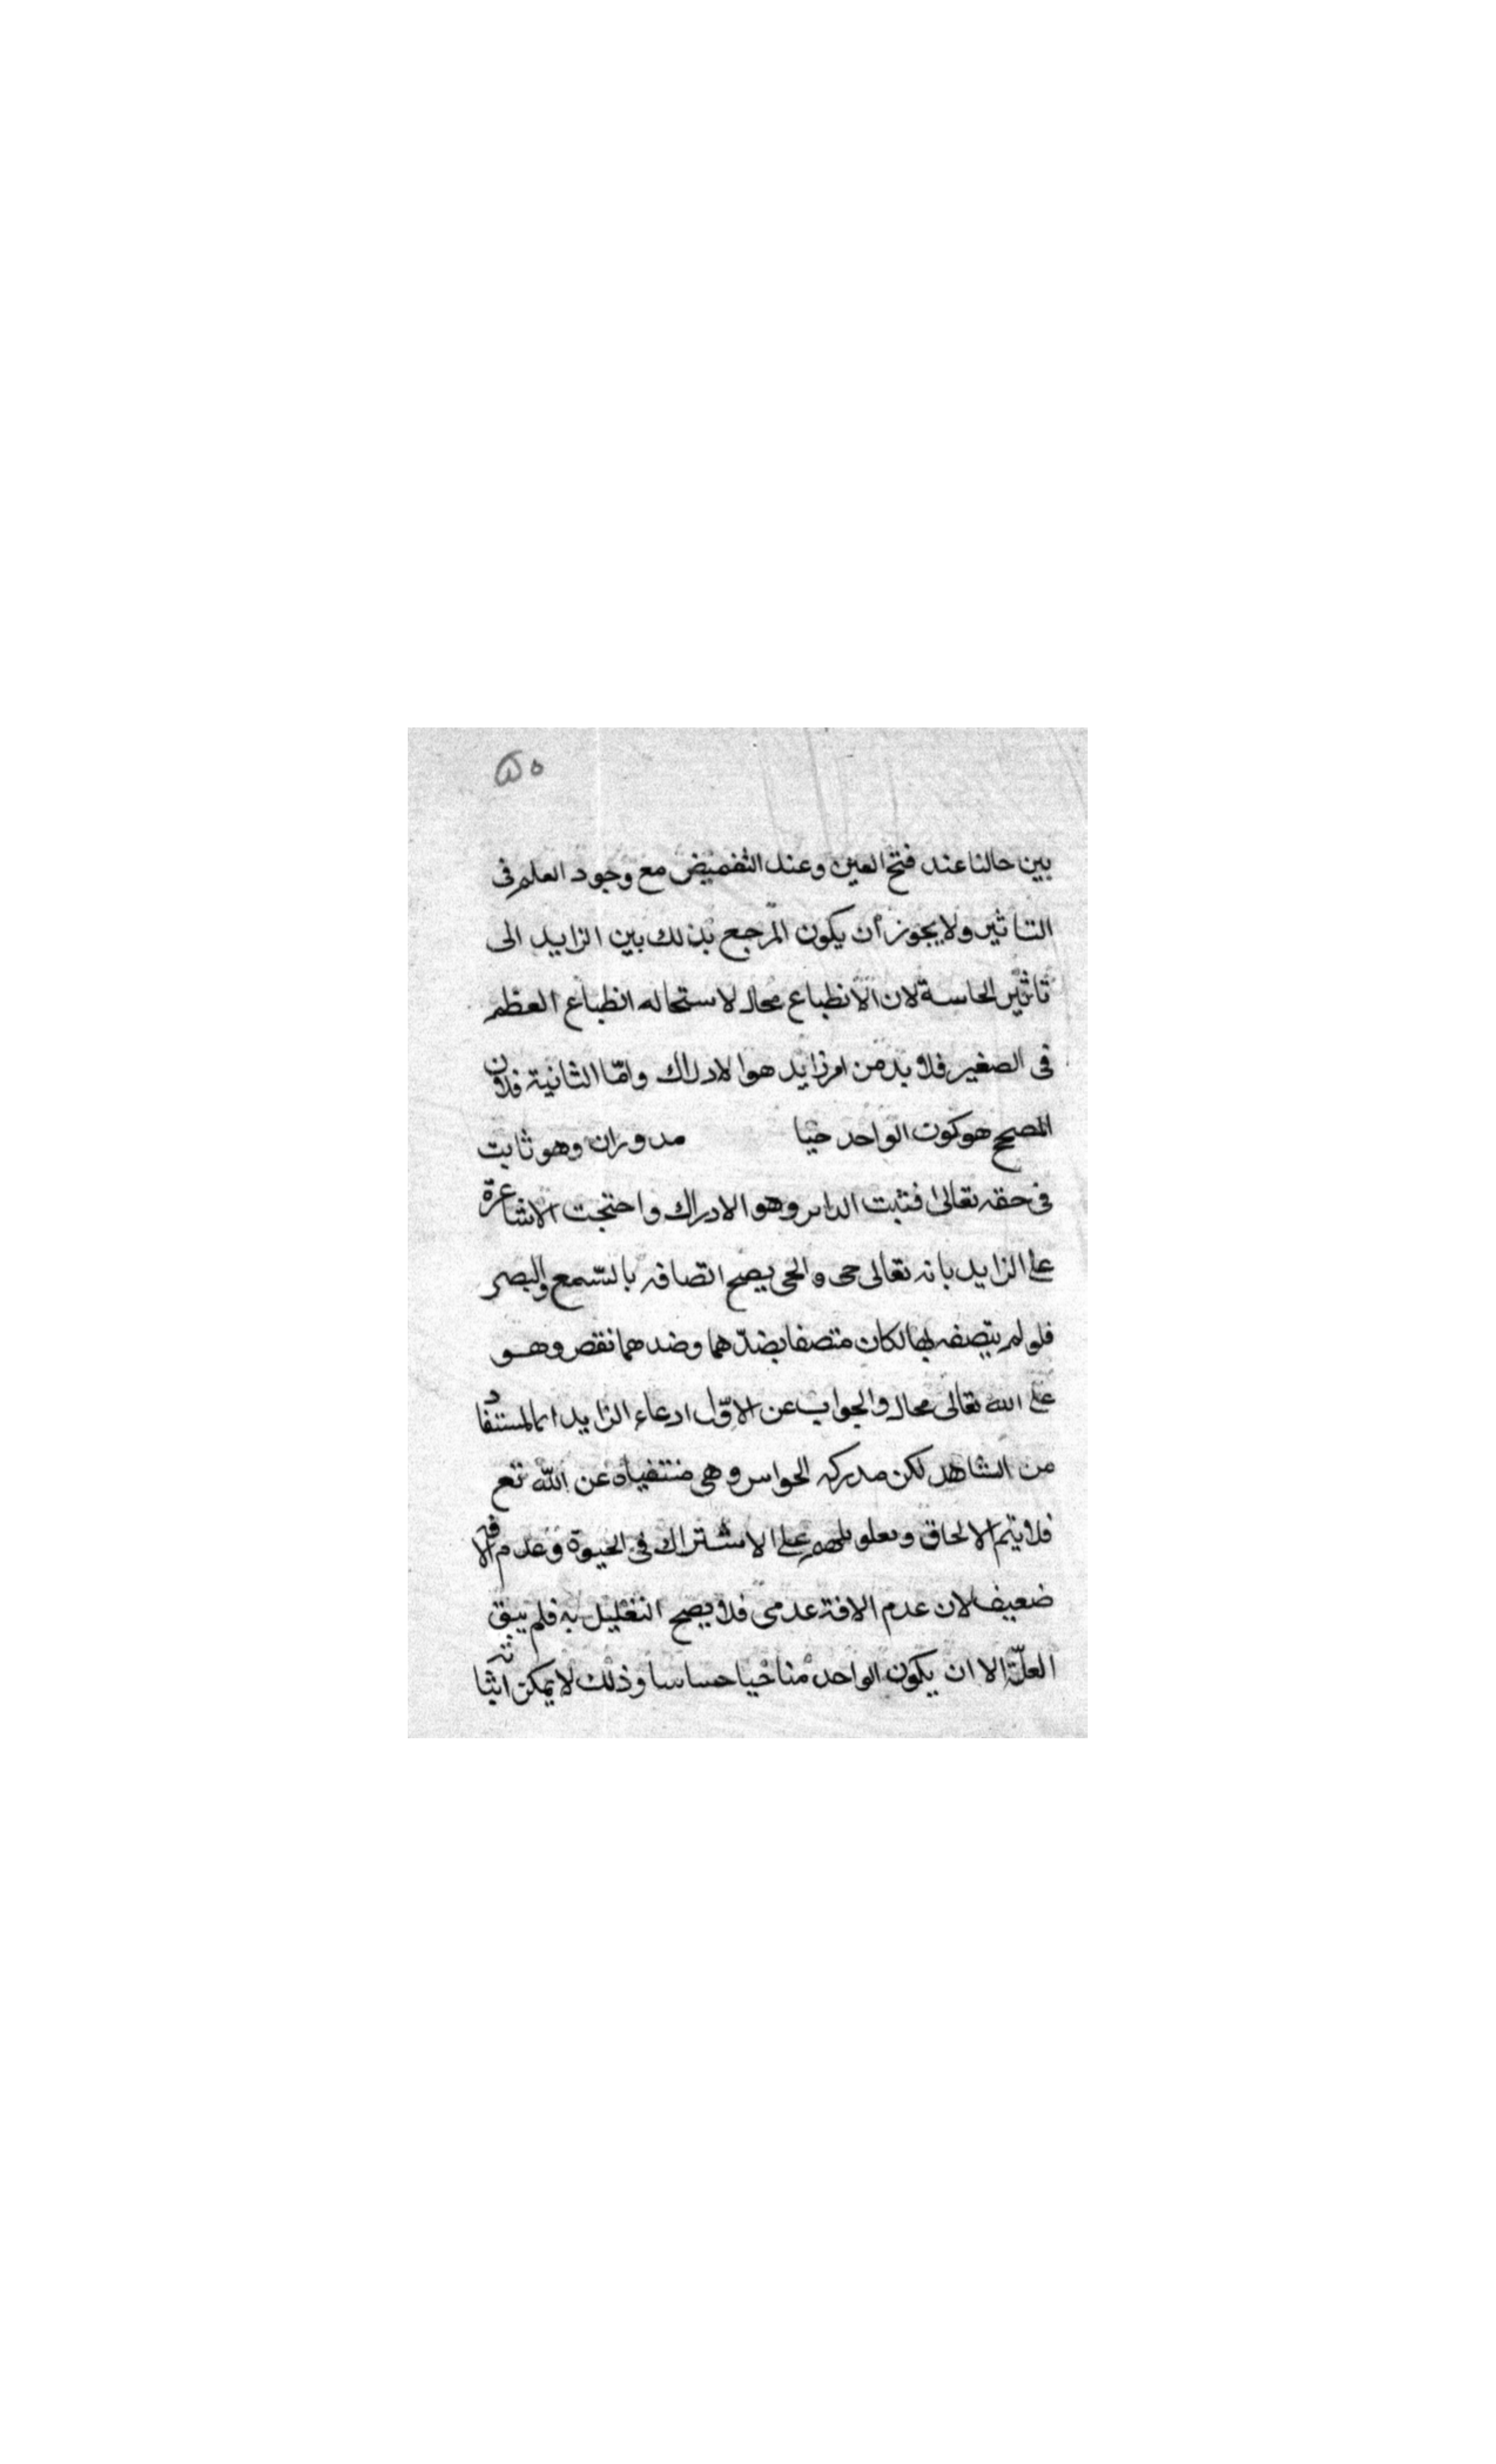 ٥٥
بين حالنا عند فتح العين وعند التغميض مع وجود العلم فى
التاثير ولا يجوز أن يكون المرجع بذلك بين الزايد الى
تاثير الحاسة لان الانطباع محال لاستحاله انطباع العظم
فى الصغير فلا بد من امر زايد هو الادراك وامّا الثانية فلان
المصحح هو كون الواحد حيا مدوران وهو ثابت
فى حقه تعالى فثبت الدابر وهو الادراك واحتجت الاشاعرة
على الزايد بانه تعالى حى والحى يصح اتصافه بالسّمع والبصر
فلو لم يتصف بها لكان متصفا بضدّهما وضدهما نقص وهو
على الله تعالى محال والجواب عن الاوّل ادعاء الزايد انما المستفاد
من الشاهد لكن مدركه الحواس وهى منتفياه عن الله تع
فلا يتم الالحاق على الاشتراك فى الحيوة وعدم الافه
ضعيف لان عدم الافة عدمى فلا يصح التعليل به فلم يبق
العلّة الا ان يكون الواحد منا حيا حساسا وذلك لا يمكن اثباته